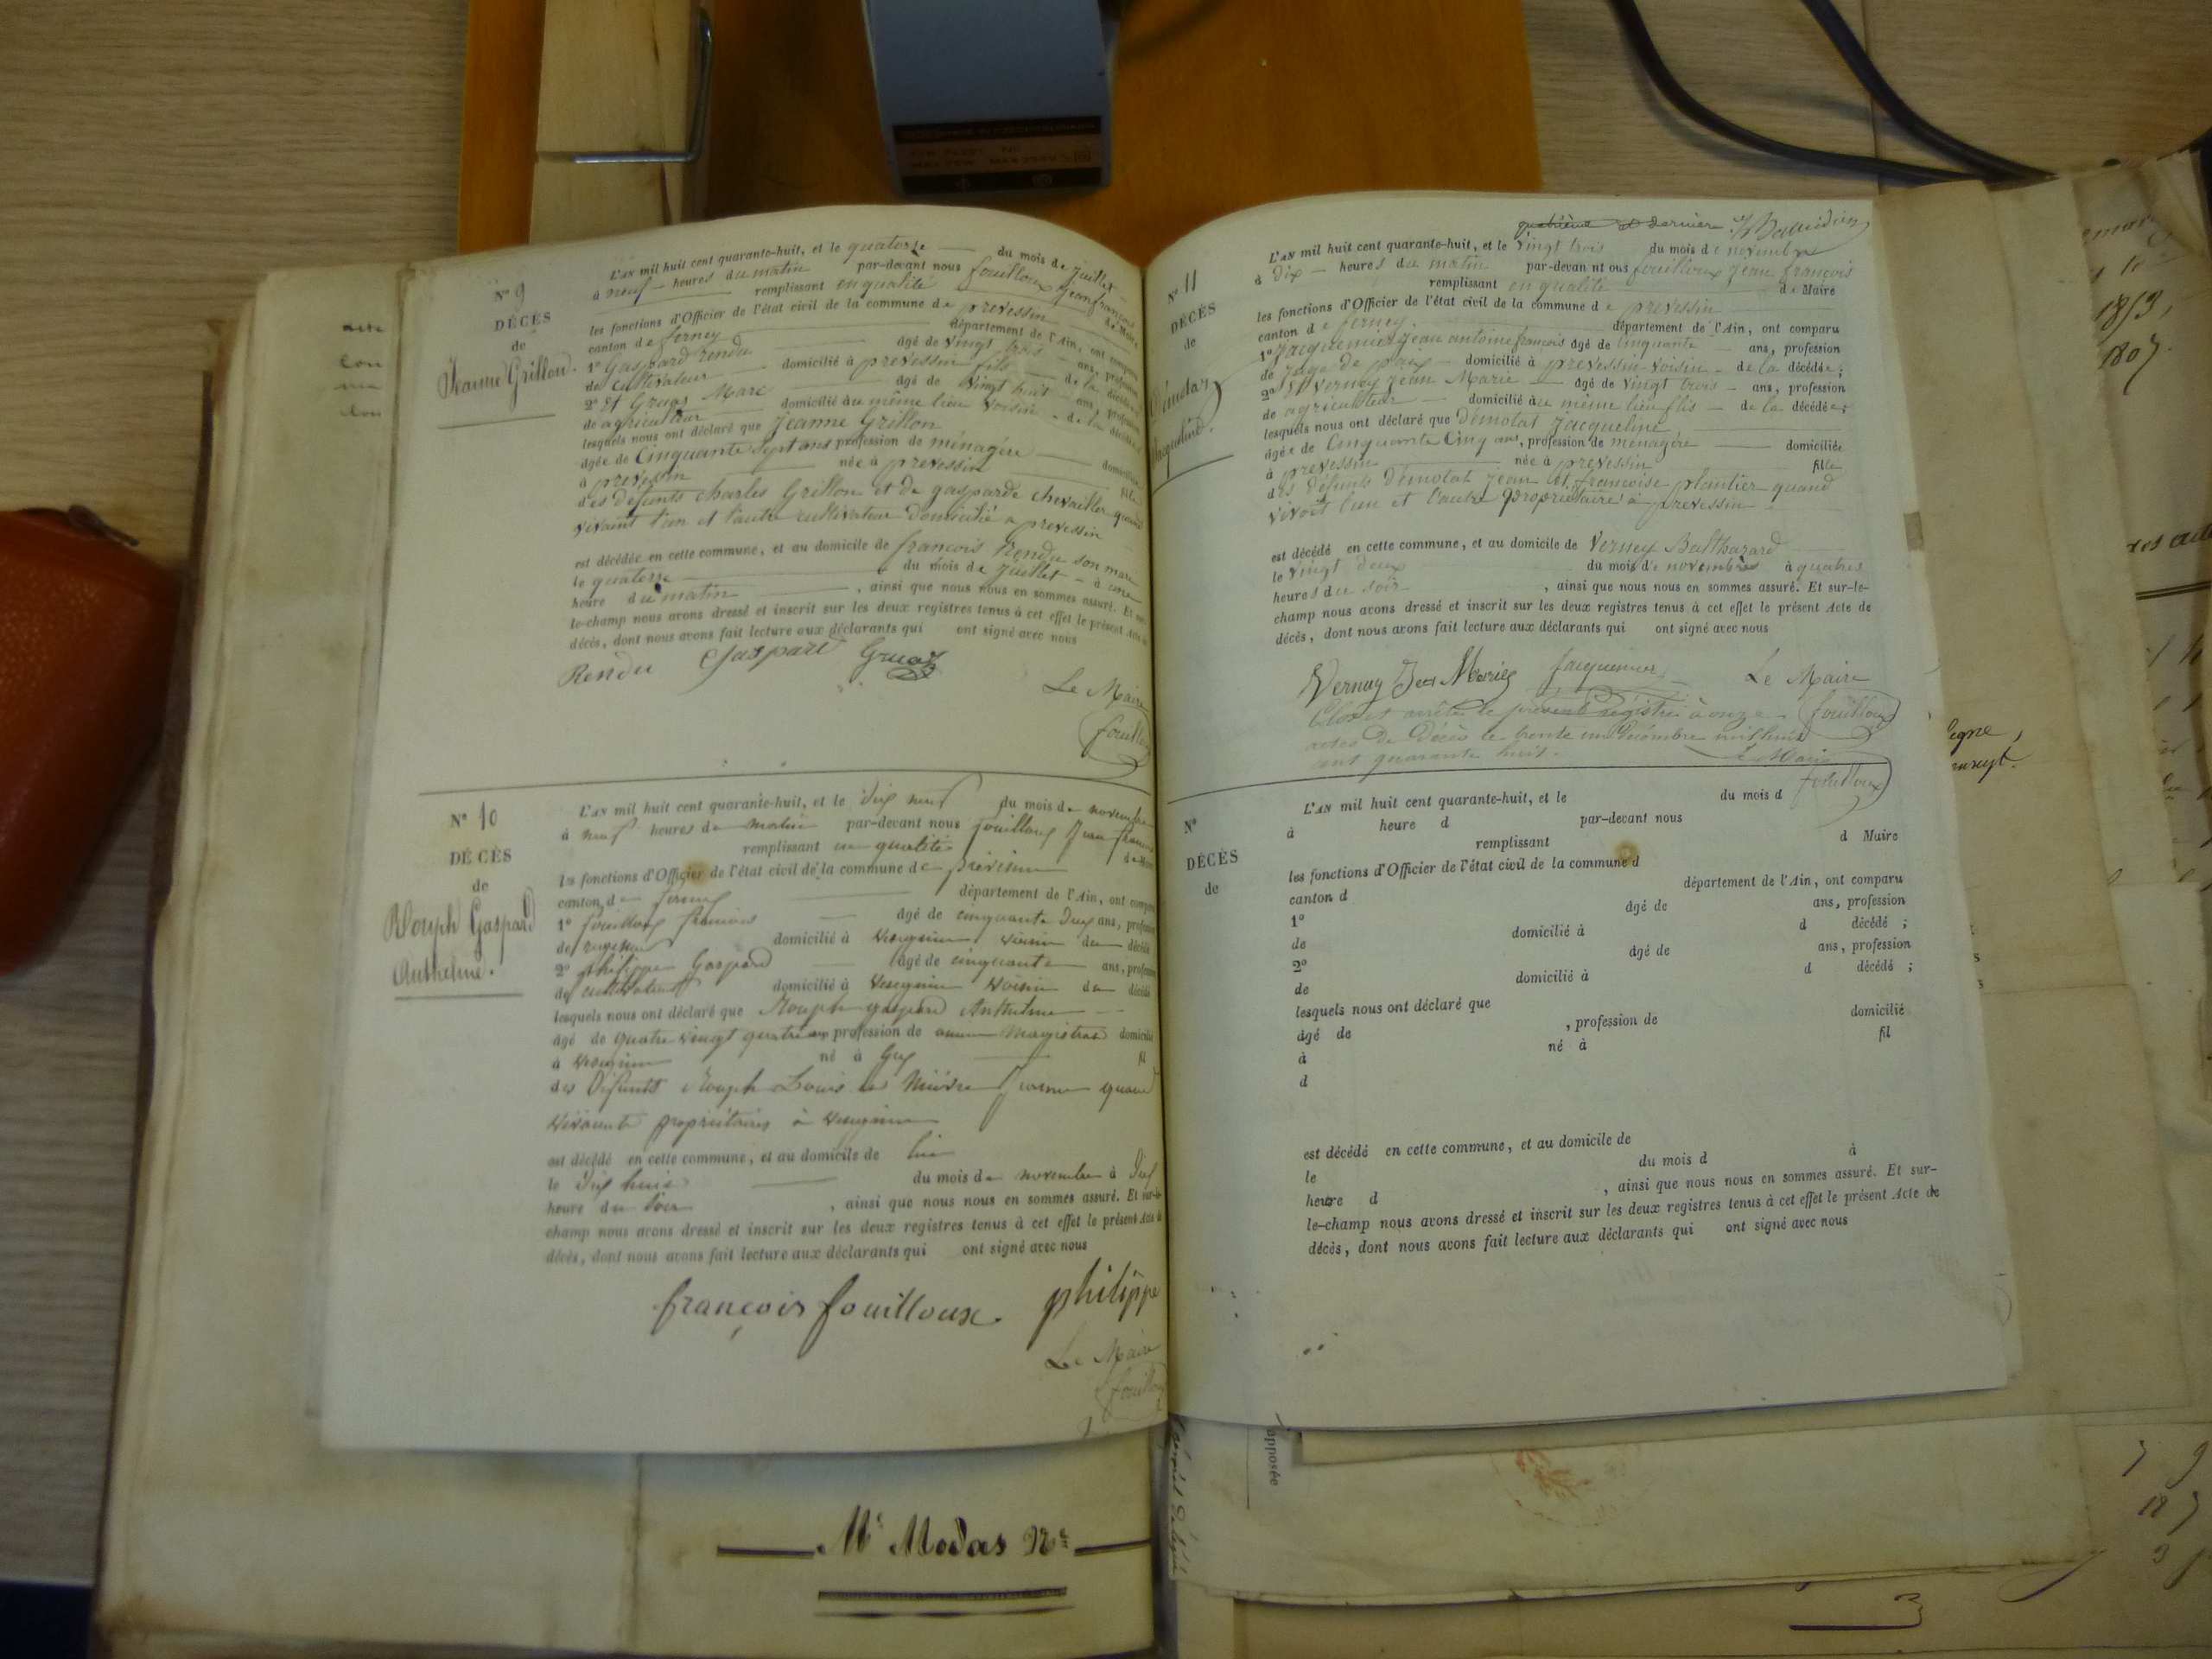 N° 9
DÉCÈS
de
Jeanne Grillon.
L'AN mil huit cent quarante-huit, et le quatorze du mois de Juillet
à neuf heures du matin par-devant nous fouilloux Jean françois
remplissant en qualité de Maire
les fonctions d'Officier de l'état civil de la commune de prevessin
canton de ferney département de l'Ain, ont comparu
1° Gaspard rendu âgé de vingt trois ans, profession
de cultivateur domicilié à prevessin fils de la décédée
2° et Gruaz Marc âgé de vingt huit ans, profession
de agriculteur domicilié au même lieu voisin de la décédée
lesquels nous ont déclaré que Jeanne Grillon
âgée de Cinquante Sept ans profession de ménagère domiciliée
à prevessin née à prevessin fille
des défunts Charles Grillon et de gasparde chevallier quand
vivaint l'un et l'autre cultivateur domicilié a prevessin
est décédée en cette commune, et au domicile de francois Rendu son mari
le quatorze du mois de Juillet à une
heure du matin , ainsi que nous nous en sommes assuré. Et sur-
le-champ nous avons dressé et inscrit sur les deux registres tenus à cet effet le présent Acte de
décès, dont nous avons fait lecture aux déclarants qui ont signé avec nous
Rendu Gaspard Gruaz
Le Maire
fouilloux
N° 10
DÉCÈS
de
Rouph Gaspard
Anthelme.
L'AN mil huit cent quarante-huit, et le dix neuf du mois de novembre
à neuf heures du matin par-devant nous fouilloux Jean francois
remplissant en qualité de Maire
les fonctions d'Officier de l'état civil de la commune de prévessin
canton de ferney département de l'Ain, ont comparu
1° fouilloux francois âgé de cinquante deux ans, profession
de domicilié à Vesegnin voisin du décédé
2° philippe Gaspard âgé de cinquante ans, profession
de cultivateur domicilié à Vesegnin Voisin du décédé
lesquels nous ont déclaré que Rouph gaspard Anthelme
âgé de quatre vingt quatre ans profession de ancien magistrat domicilié
à Vesegnin né à Gex fil
des Défunts Rouph Louis et Nièvre quand
vivants propriétaires à Vesegnin
est décédé en cette commune, et au domicile de lui
le dix huit du mois de novembre à dix
heure du soir , ainsi que nous nous en sommes assuré. Et sur-le-
champ nous avons dressé et inscrit sur les deux registres tenus à cet effet le présent Acte de
décès, dont nous avons fait lecture aux déclarants qui ont signé avec nous
françois fouilloux philippe
Le Maire
fouilloux
et dernier
N° 11
DÉCÈS
de
Démolat
Jacqueline.
L'AN mil huit cent quarante-huit, et le vingt trois du mois de novembre
à dix heures du matin par-devant nous fouilloux Jean françois
remplissant en qualité de Maire
les fonctions d'Officier de l'état civil de la commune de prevessin
canton de ferney. département de l'Ain, ont comparu
1° Jacquemier Jean antoine françois âgé de Cinquante ans, profession
de Juge de paix domicilié à prevessin voisin de la décédée;
2° et Verney Jean Marie âgé de vingt trois ans, profession
de agriculteur domicilié au même lieu fils de la décédée;
lesquels nous ont déclaré que Démolat Jacqueline
âgée de Cinquante Cinq ans, profession de ménagère domiciliée
à prevessin née à prevessin fille
des défunts Démolat Jean et francoise plantier quand
vivoit l'un et l'autre propriétaire à prevessin
est décédé en cette commune, et au domicile de Verney Balthazard
le vingt deux du mois de novembre à quatres
heures du soir , ainsi que nous nous en sommes assuré. Et sur-le-
champ nous avons dressé et inscrit sur les deux registres tenus à cet effet le présent Acte de
décès, dont nous avons fait lecture aux déclarants qui ont signé avec nous
Vernay Jean Marie Jacquemier Le Maire
fouilloux
Clos et arrêté le présent registre à onze
actes de Décès le trente un Décembre mil huit
cent quarante huit. Le Maire
fouilloux
N°
DÉCÈS
de
L'AN mil huit cent quarante-huit, et le du mois d
à heure d par-devant nous
remplissant d Maire
les fonctions d'Officier de l'état civil de la commune d
canton d département de l'Ain, ont comparu
1° âgé de ans, profession
de domicilié à d décédé ;
2° âgé de ans, profession
de domicilié à d décédé ;
lesquels nous ont déclaré que
âgé de , profession de domicilié
à né à fil
d
est décédé en cette commune, et au domicile de
le du mois d à
heure d , ainsi que nous nous en sommes assuré. Et sur-
le-champ nous avons dressé et inscrit sur les deux registres tenus à cet effet le présent Acte de
décès, dont nous avons fait lecture aux déclarants qui ont signé avec nous
Mc Modas
apposée
1813,
1807.